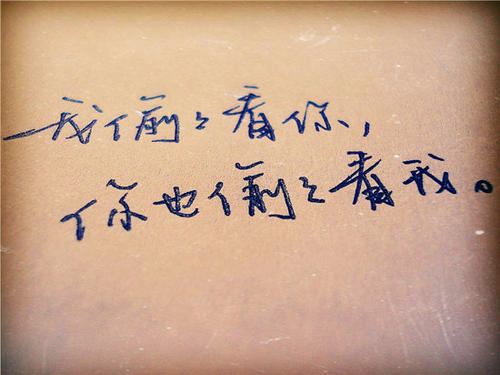 我偷々看你,
你也偷々看我。